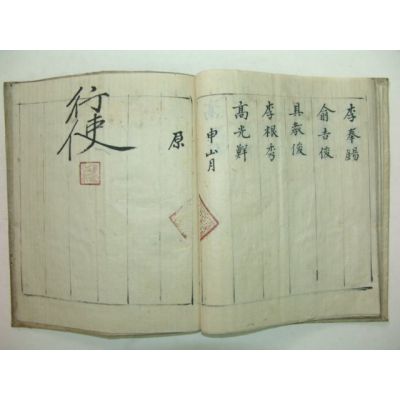 李奉錫
俞吉俊
具教俊
李根秀
高光鄭
申山月
原
行使